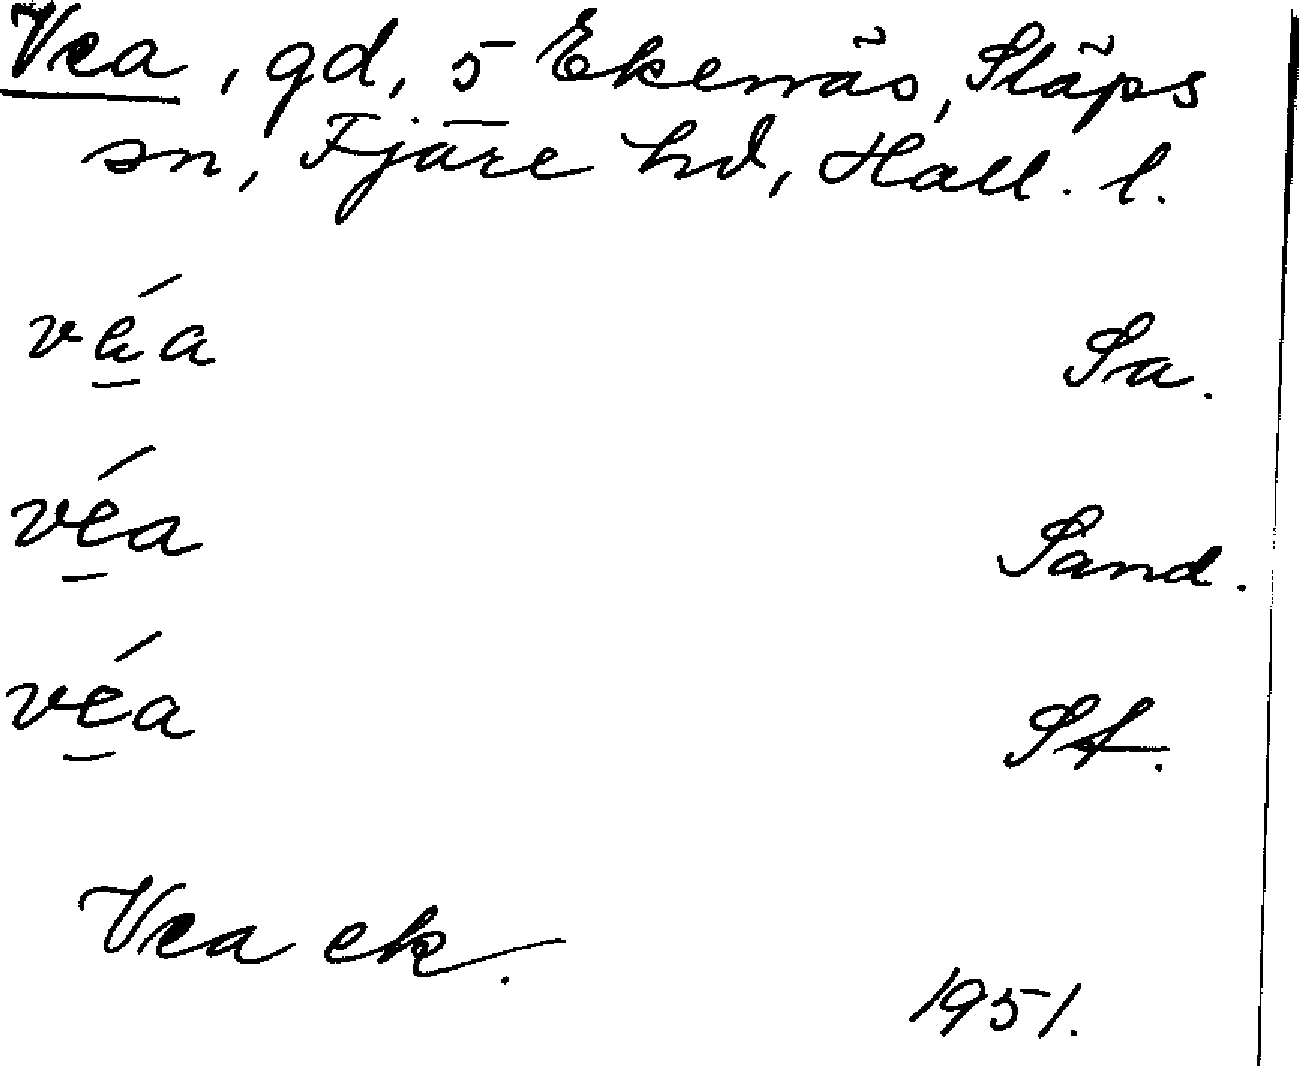 Vea, gd, 5 Ekenäs, Släps
sn, Fjäre hd, Hall. l.
véa Sa.
véa Sand.
véa St.
Vea ek.
1951.